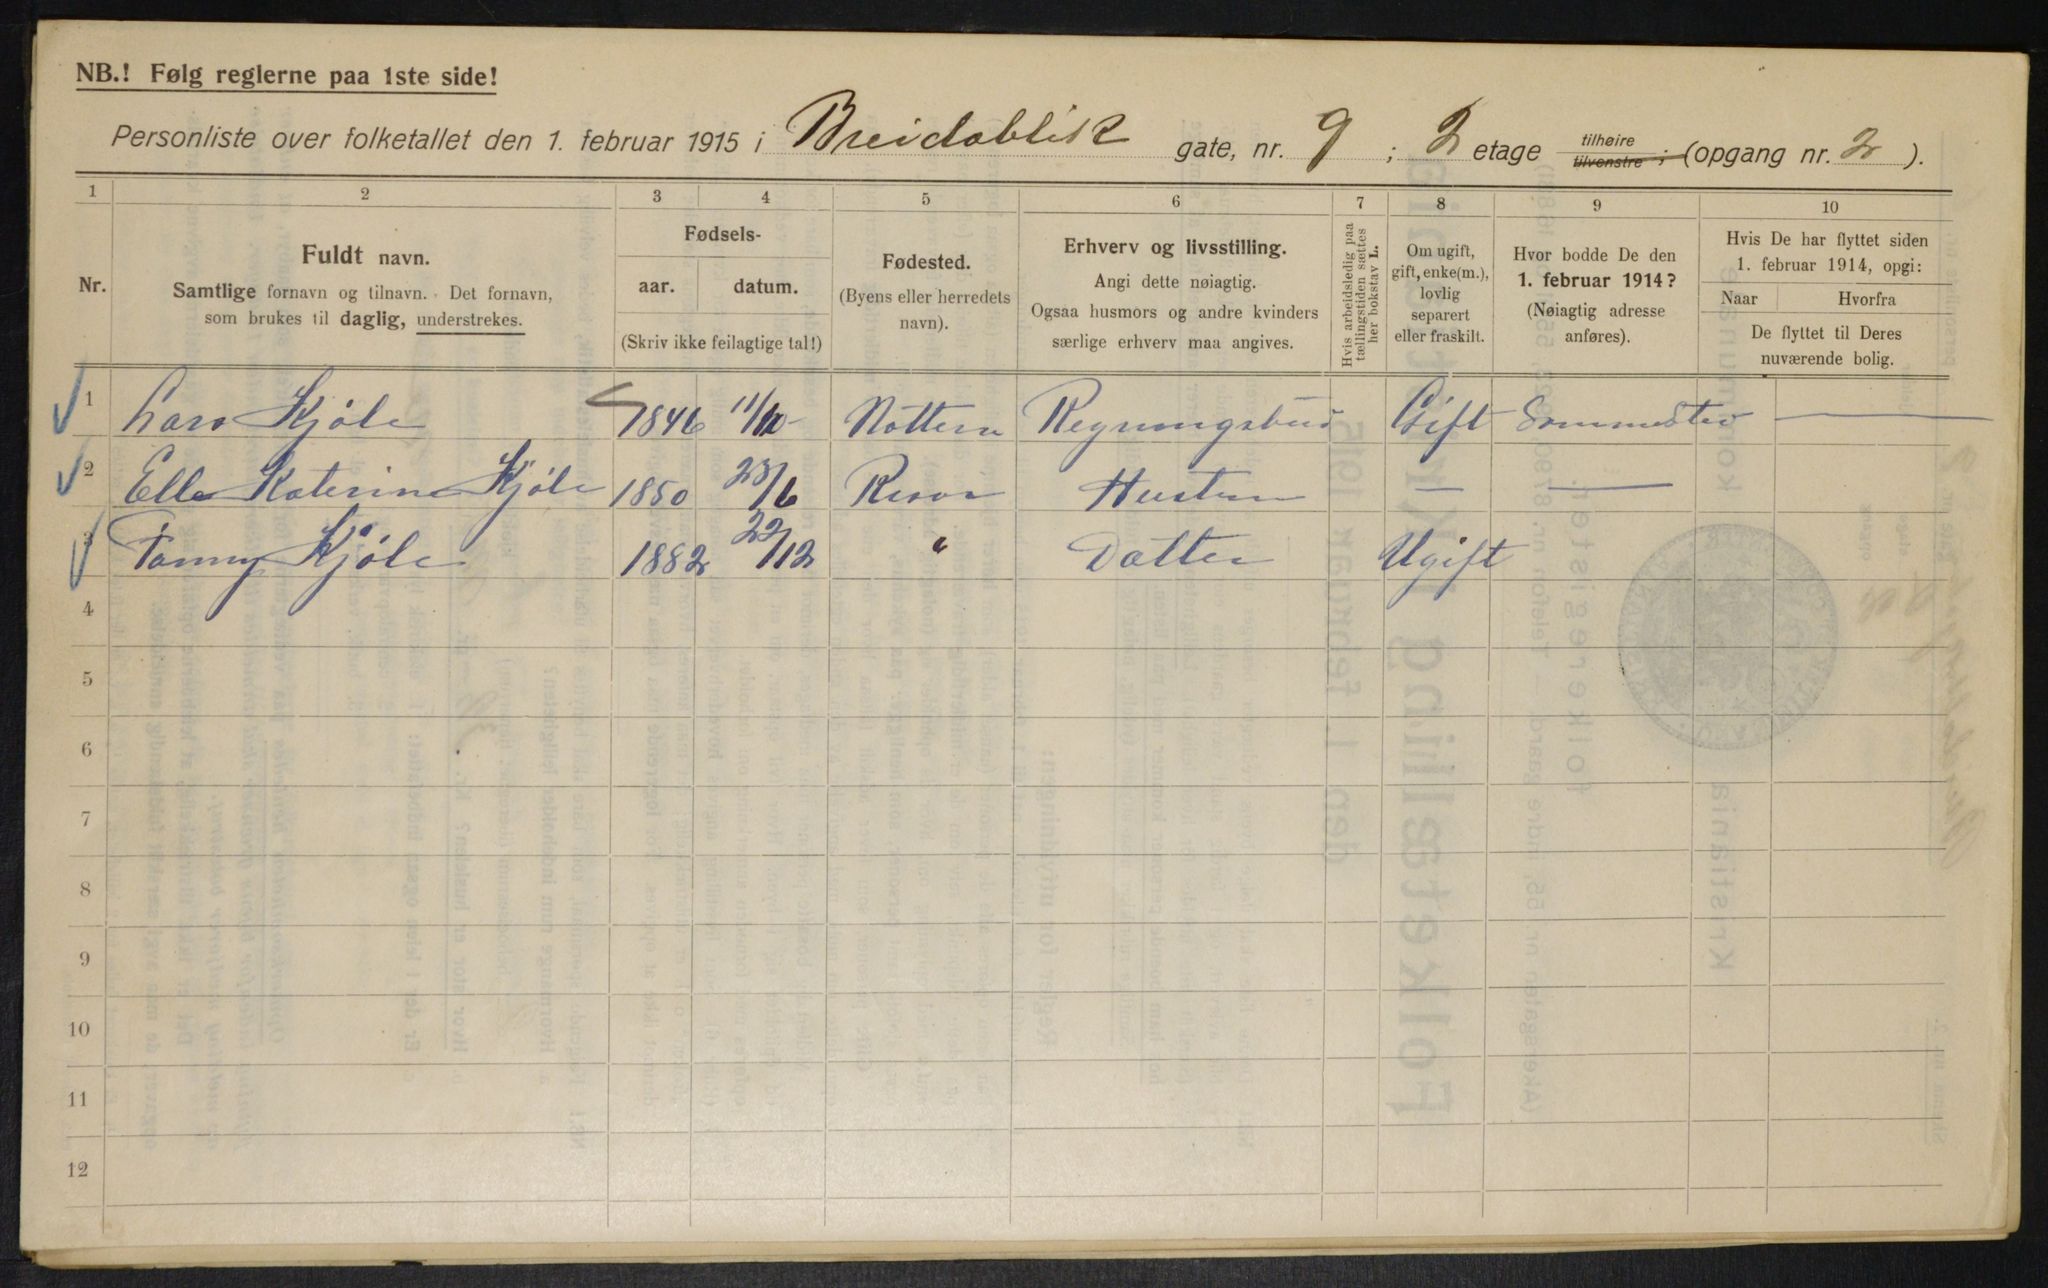 NB.! Følg reglerne paa 1ste side!
Personliste over folketallet den 1. februar 1915 i Breidablik gate, nr. 9 ; 2 etage tilhøire tilvenstre ; (opgang nr. 2 ).
1 2 3 4 5 6 7 8 9 10
Nr.
Fuldt navn.
Samtlige fornavn og tilnavn. Det fornavn,
som brukes til daglig, understrekes.
Fødsels-
aar. datum.
(Skriv ikke feilagtige tal!)
Fødested.
(Byens eller herredets
navn).
Erhverv og livsstilling.
Angi dette nøiagtig.
Ogsaa husmors og andre kvinders
særlige erhverv maa angives.
Hvis arbeidsledig paa
tællingstiden sættes
her bokstav L.
Om ugift,
gift, enke(m.),
lovlig
separert
eller fraskilt.
Hvor bodde De den
1. februar 1914?
(Nøiagtig adresse
anføres).
Hvis De har flyttet siden
1. februar 1914, opgi:
Naar Hvorfra
De flyttet til Deres
nuværende bolig.
1 Lars Kjöle 1846 11/10 Nøttern Regningsbud Gift Sammested —
2 Elle Katerine Kjöle 1850 23/6 Risør Hustru — —
3 Fanny Kjöle 1882 22/12 " Datter Ugift
4
5
6
7
8
9
10
11
12